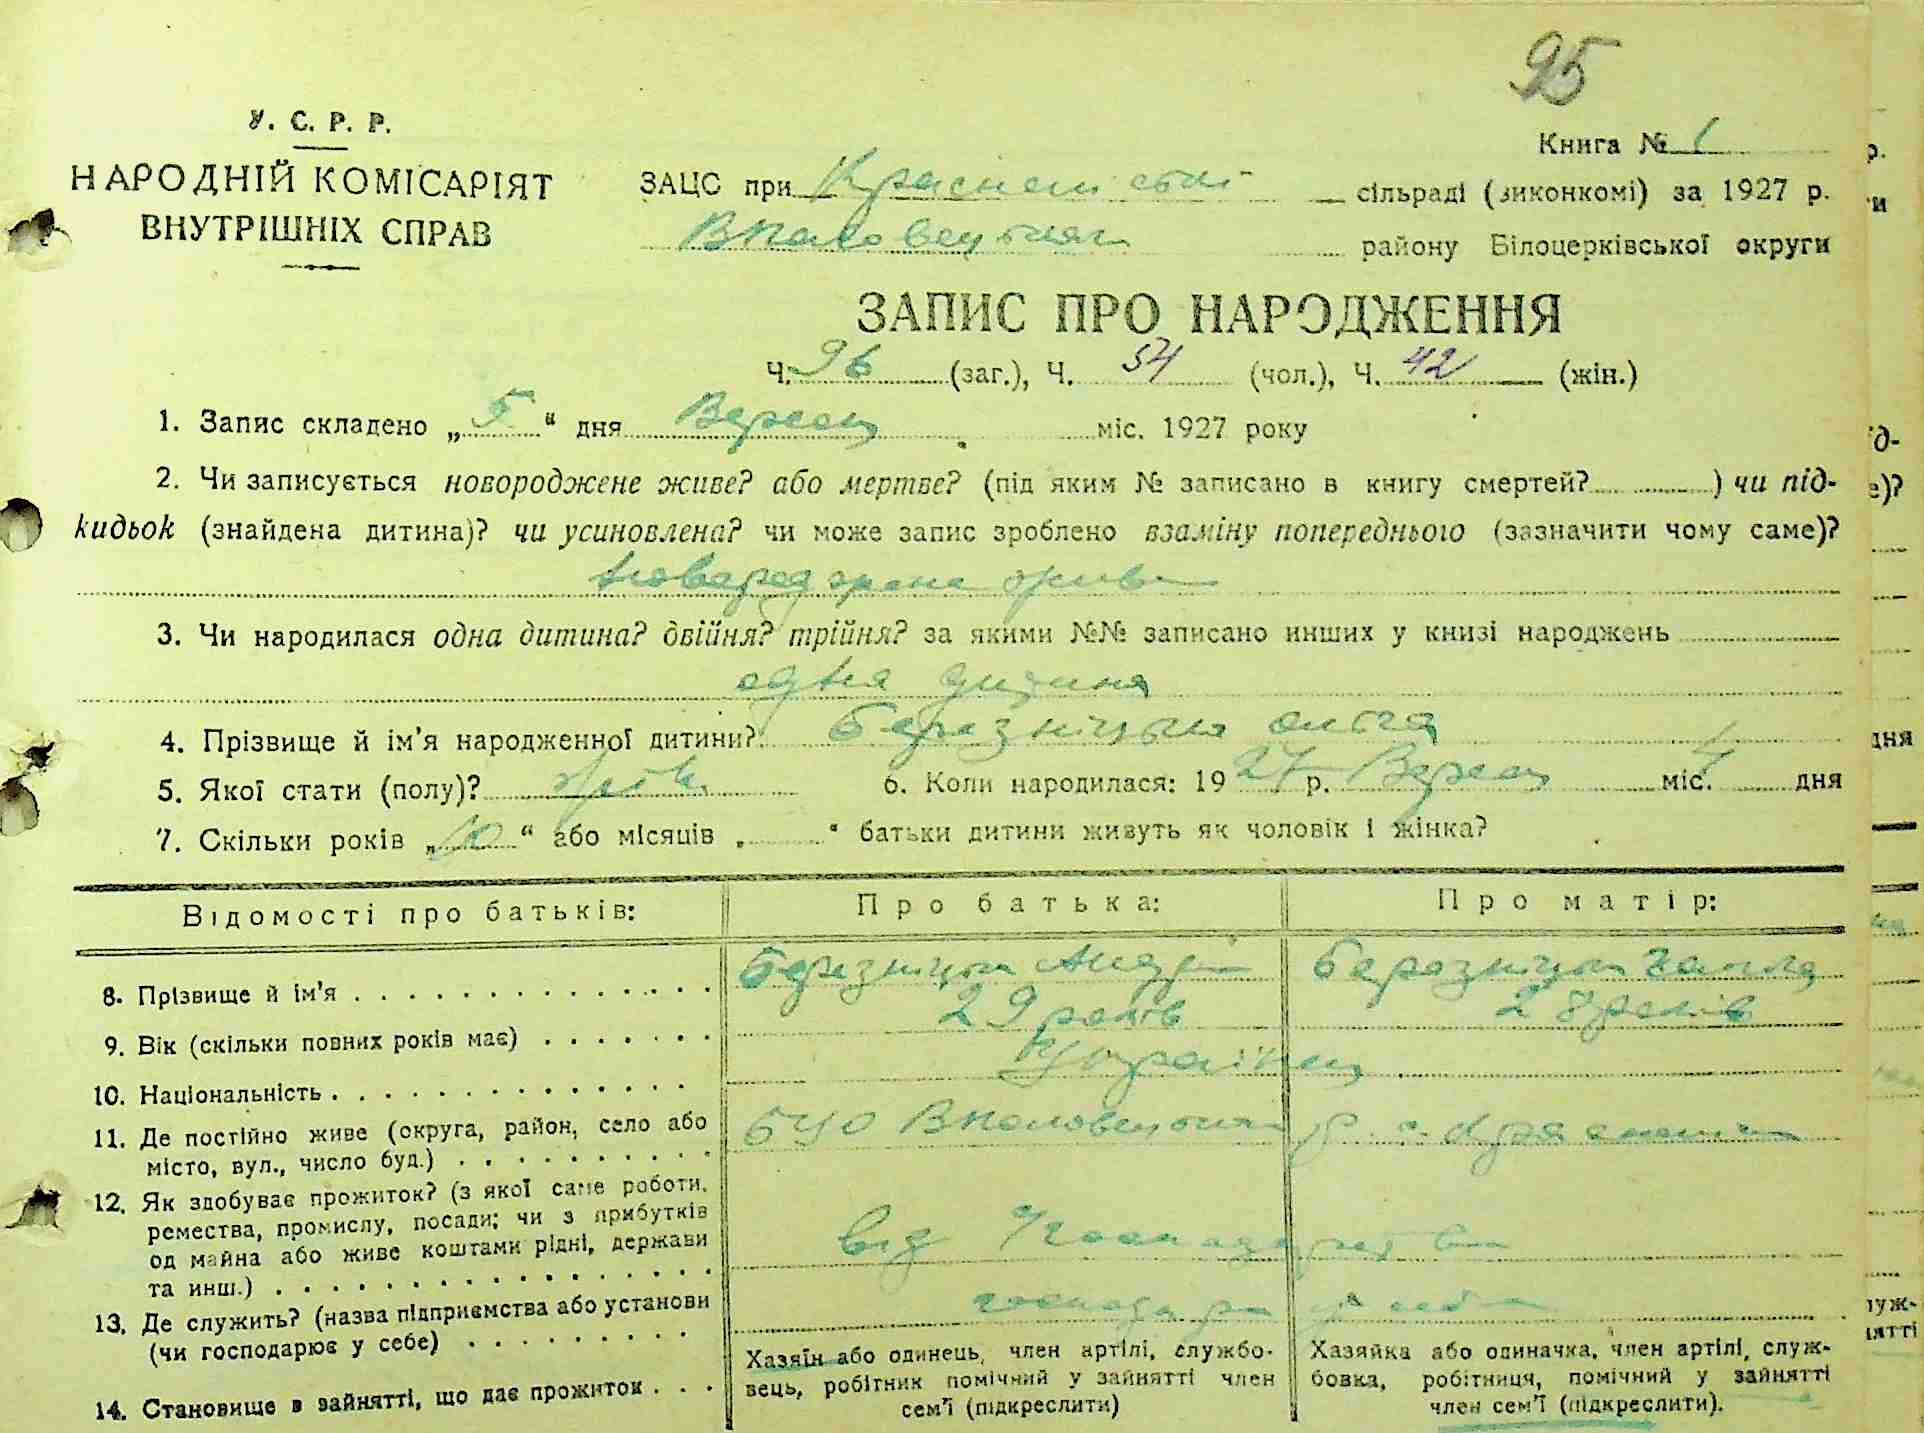 95
У. С. Р. Р.
НАРОДНІЙ КОМІСАРІЯТ
ВНУТРІШНІХ СПРАВ
Книга № 1
ЗАЦС при сільраді (виконкомі) за 1927 р.
району Білоцерківської округи
ЗАПИС ПРО НАРОДЖЕННЯ
Ч. 96 (заг.), Ч. 54 (чол.), Ч. 42 (жін.)
1. Запис складено „ 5 “ дня Вересня міс. 1927 року
2. Чи записується новороджене живе? або мертве? (під яким № записано в книгу смертей? ) чи під-
кидьок (знайдена дитина)? чи усиновлена? чи може запис зроблено взаміну попереднього (зазначити чому саме)?
3. Чи народилася одна дитина? двійня? трійня? за якими №№ записано инших у книзі народжень
одна дитина
4. Прізвище й ім'я народженної дитини? Ольга
5. Якої стати (полу)? 6. Коли народилася: 1927 р. Вересня міс. 4 дня
7. Скільки років „ 10 “ або місяців „ “ батьки дитини живуть як чоловік і жінка?
Відомості про батьків: Про батька: Про матір:
8. Прізвище й ім'я Андрій Ганна
9. Вік (скільки повних років має) 29 років 28 років
10. Національність Українці
11. Де постійно живе (округа, район, село або
місто, вул., число буд.) БЦО
12. Як здобуває прожиток? (з якої саме роботи,
ремества, промислу, посади; чи з прибутків
од майна або живе коштами рідні, держави
та инш.) від
13. Де служить? (назва підприємства або установи
(чи господарює у себе)
14. Становище в зайнятті, що дає прожиток
Хазяїн або одинець, член артілі, службо-
вець, робітник помічний у зайнятті член
сем'ї (підкреслити)
Хазяйка або одиначка, член артілі, служ-
бовка, робітниця, помічний у зайнятті
член сем'ї (підкреслити).